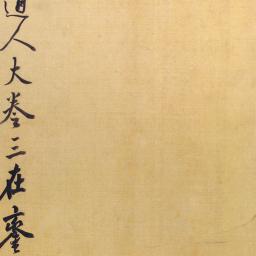 道人大卷三在